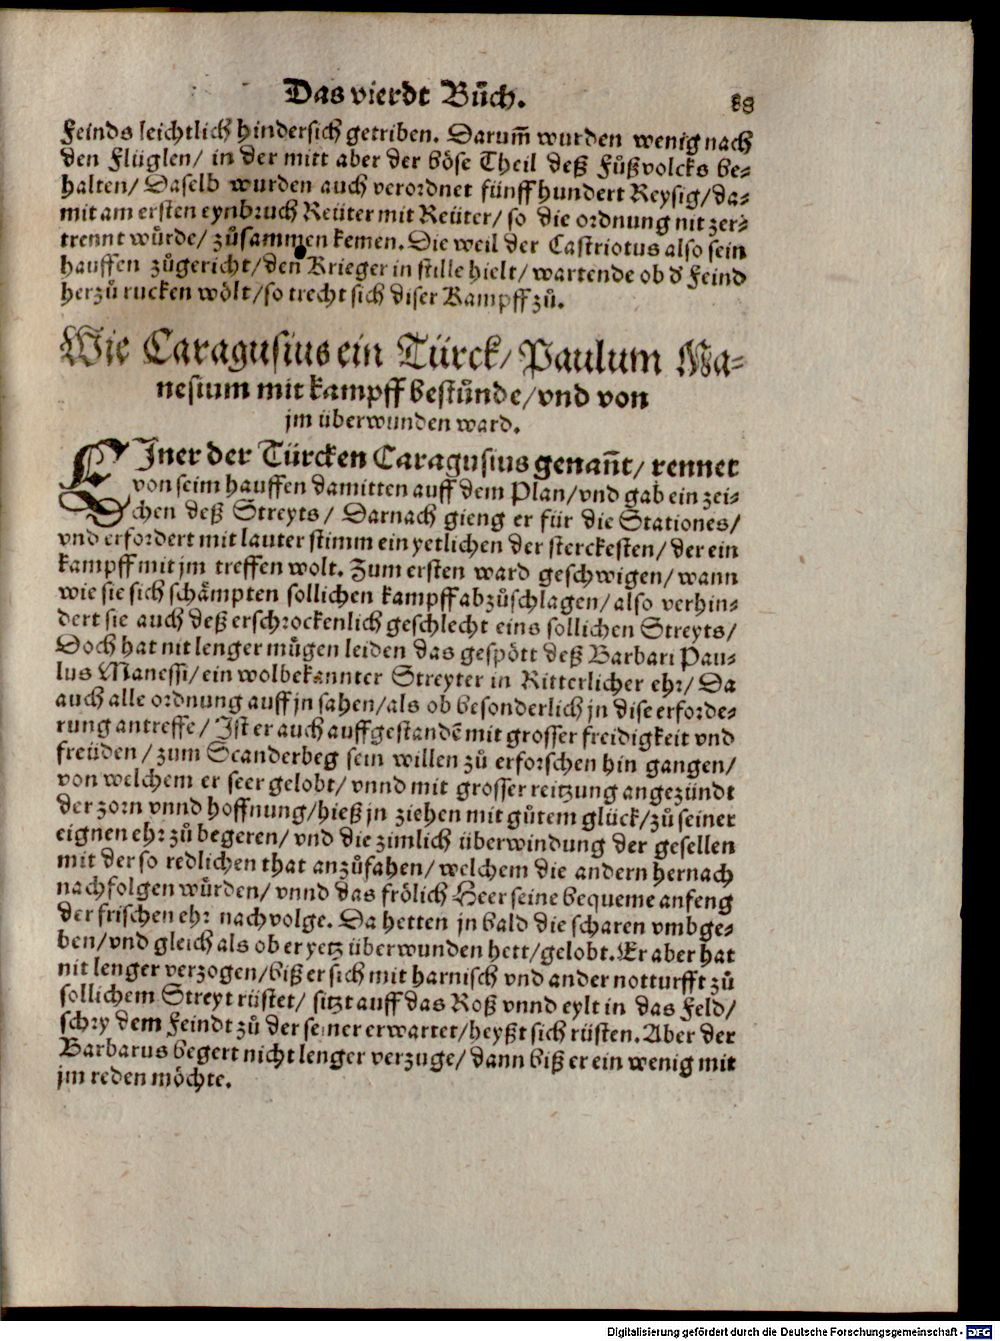 Das vierdt Bůch. 88
Feinds leichtlich hindersich getriben. Darum̄ wurden wenig nach
den Flüglen/ in der mitt aber der böse Theil deß Fůßvolcks be-
halten/ Daselb wurden auch verordnet fünffhundert Reysig/ da-
mit am ersten eynbruch Reüter mit Reüter/ so die ordnung nit zer-
trennt würde/ zůsammen kemen. Die weil der Castriotus also sein
hauffen zůgericht/ den Krieger in stille hielt/ wartende ob d' Feind
herzů rucken wölt/ so trecht sich diser Kampff zů.
Wie Caragusius ein Türck/ Paulum Ma-
nesium mit kampff bestůnde/ vnd von
jm überwunden ward.
EJner der Türcken Caragusius genañt/ rennet
von seim hauffen damitten auff dem Plan/ vnd gab ein zei-
chen deß Streyts/ Darnach gieng er für die Stationes/
vnd erfordert mit lauter stimm ein yetlichen der sterckesten/ der ein
kampff mit jm treffen wolt. Zum ersten ward geschwigen/ wann
wie sie sich schämpten sollichen kampff abzůschlagen/ also verhin-
dert sie auch deß erschrockenlich geschlecht eins sollichen Streyts/
Doch hat nit lenger mügen leiden das gespött deß Barbari Pau-
lus Manessi/ ein wolbekannter Streyter in Ritterlicher ehr/ Da
auch alle ordnung auff jn sahen/ als ob besonderlich jn dise erforde-
rung antreffe/ Jst er auch auffgestandē mit grosser freidigkeit vnd
freüden/ zum Scanderbeg sein willen zů erforschen hin gangen/
von welchem er seer gelobt/ vnnd mit grosser reitzung angezündt
der zorn vnnd hoffnung/ hieß jn ziehen mit gůtem glück/ zů seiner
eignen ehr zů begeren/ vnd die zimlich überwindung der gesellen
mit der so redlichen that anzůfahen/ welchem die andern hernach
nachfolgen würden/ vnnd das frölich Heer seine bequeme anfeng
der frischen ehr nachvolge. Da hetten jn bald die scharen vmbge-
ben/ vnd gleich als ob er yetz überwunden hett/ gelobt. Er aber hat
nit lenger verzogen/ biß er sich mit harnisch vnd ander notturfft zů
sollichem Streyt rüstet/ sitzt auff das Roß vnnd eylt in das Feld/
schry dem Feindt zů der seiner erwartet/ heyßt sich rüsten. Aber der
Barbarus begert nicht lenger verzuge/ dann biß er ein wenig mit
jm reden möchte.
Digitalisierung gefördert durch die Deutsche Forschungsgemeinschaft - DFG